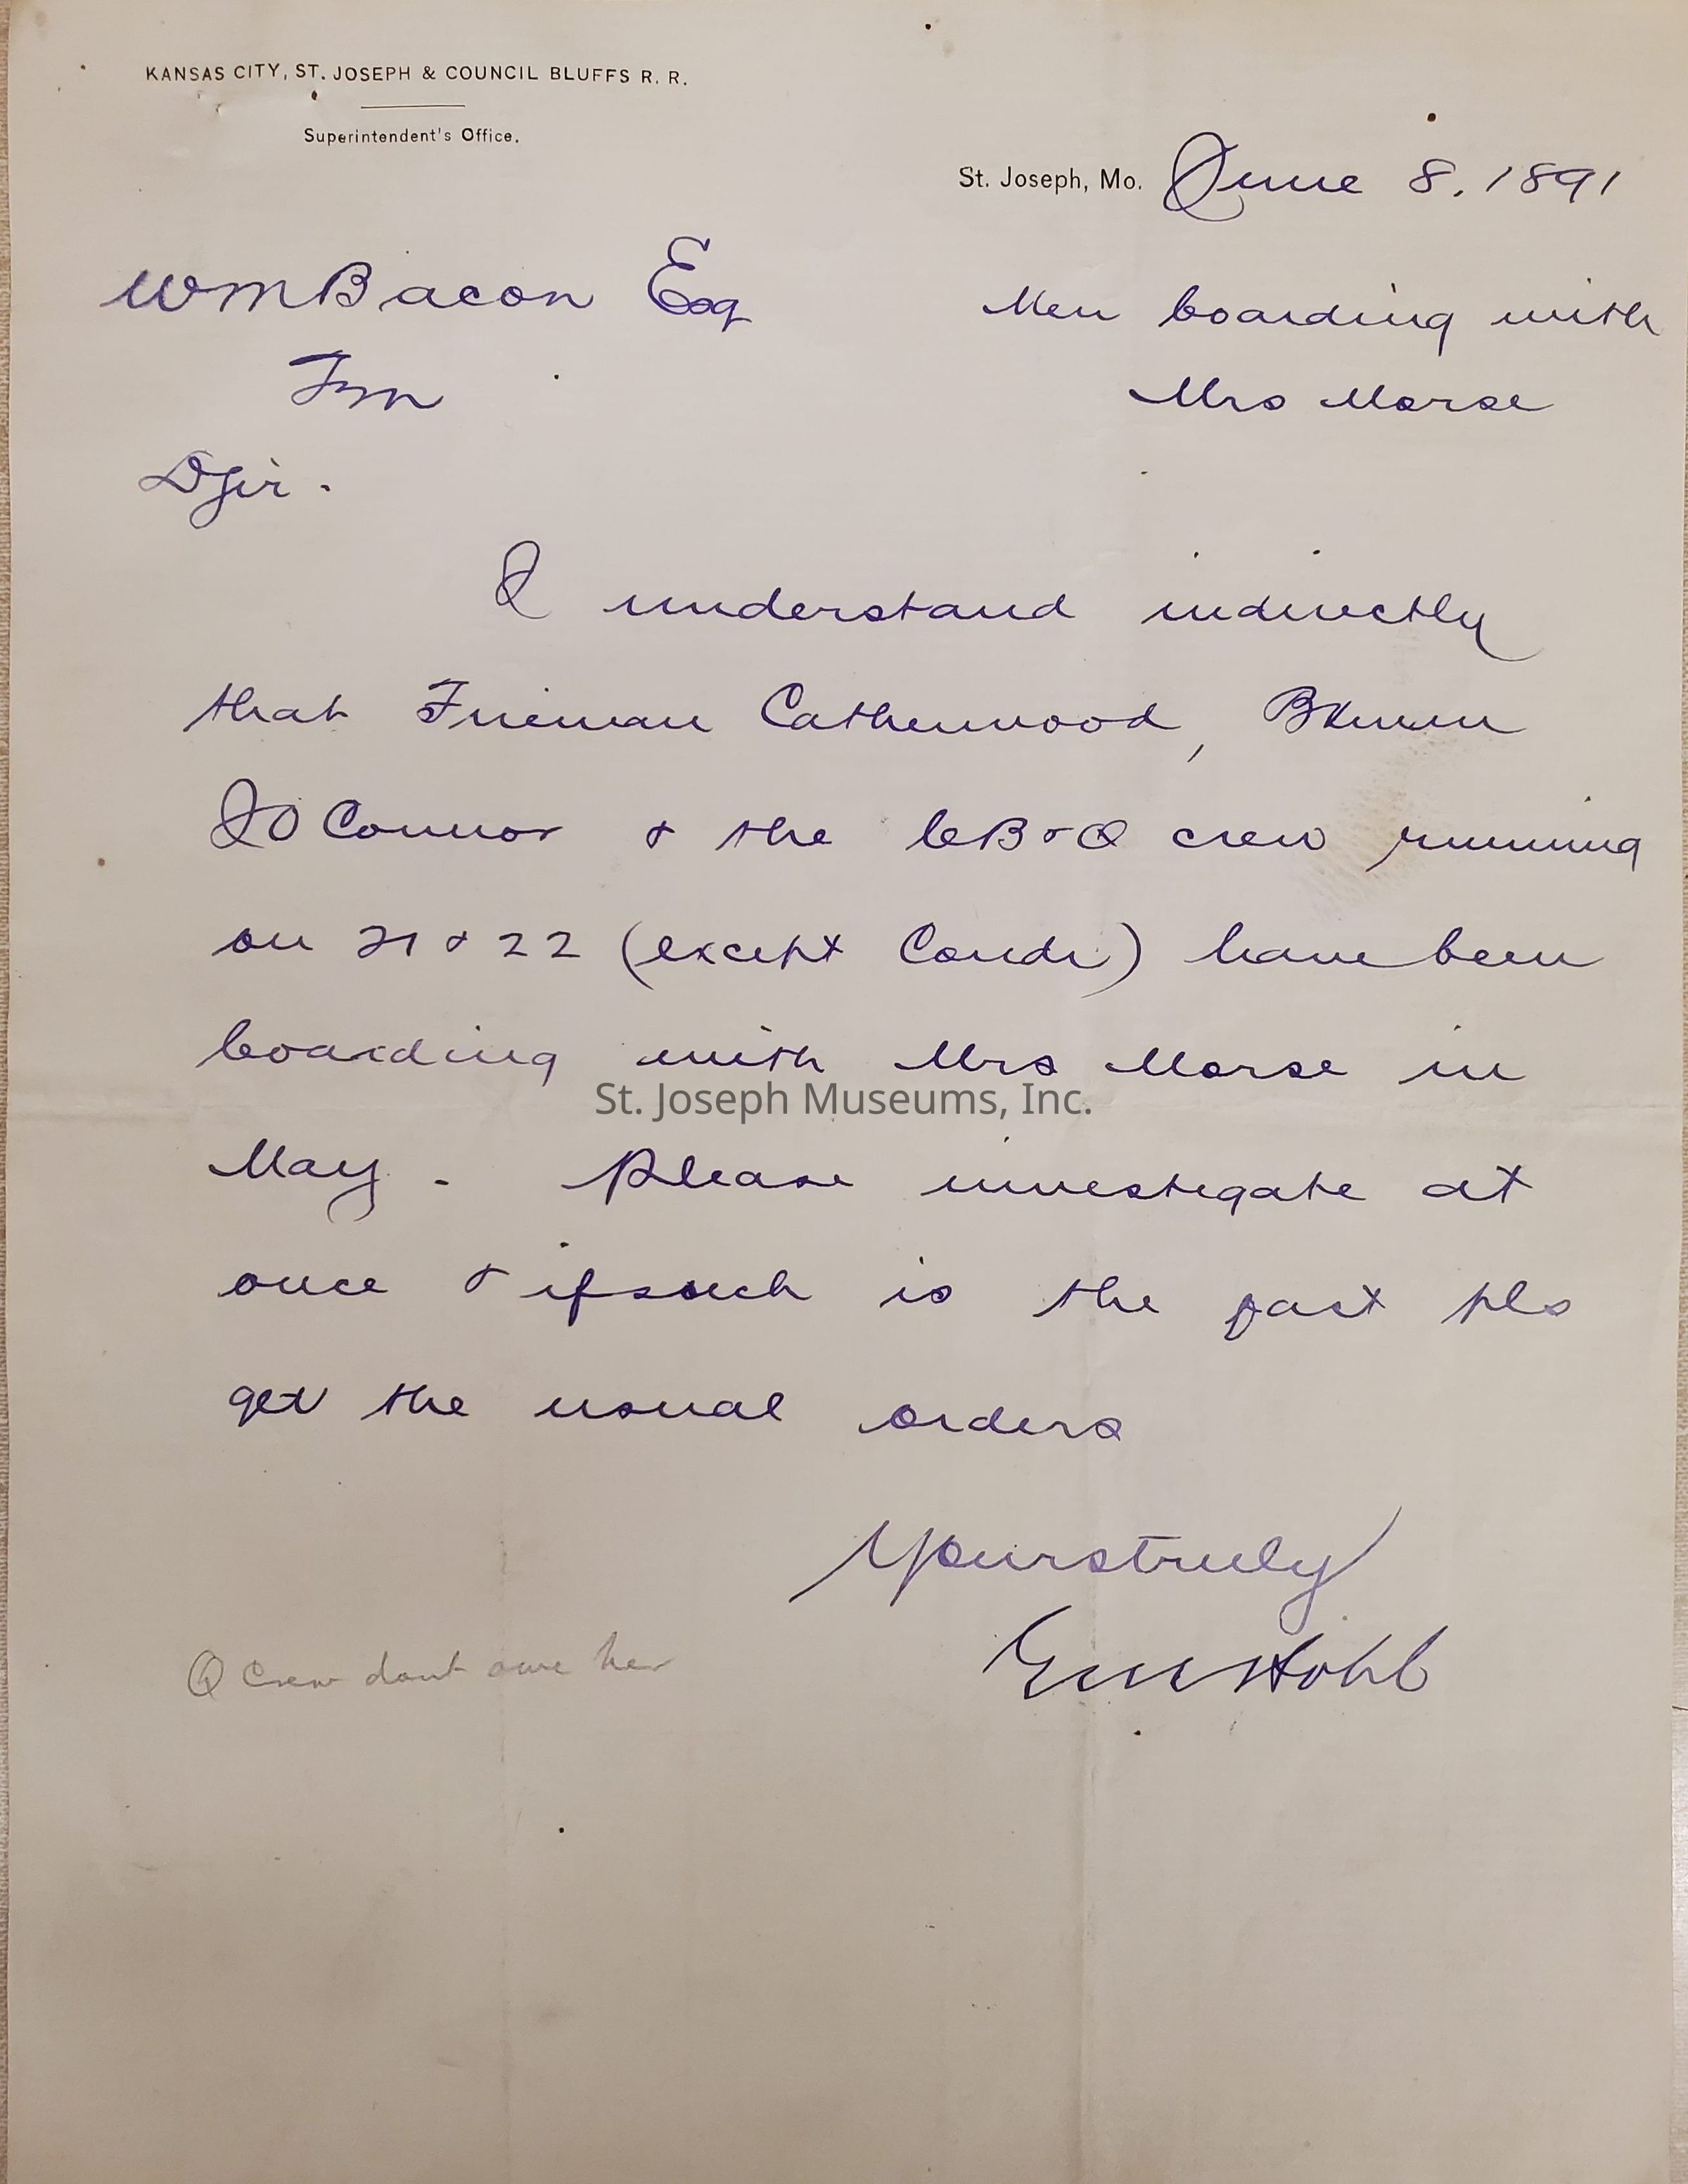 KANSAS CITY, ST. JOSEPH & COUNCIL BLUFFS R. R.
Superintendent's Office.
St. Joseph, Mo. June 8, 1891
Wm Bacon Esq
Men boarding with
Mrs Morse
DSir.
I understand indirectly
that Fireman Catherwood, Bkmen
JO Connor & the CB&Q crew running
on 21 & 22 (except Condr) have been
boarding with Mrs Morse in
May. Please investigate at
once & if such is the fact pls
get the usual orders
Yours truly
Q Crew dont owe her
St. Joseph Museums, Inc.